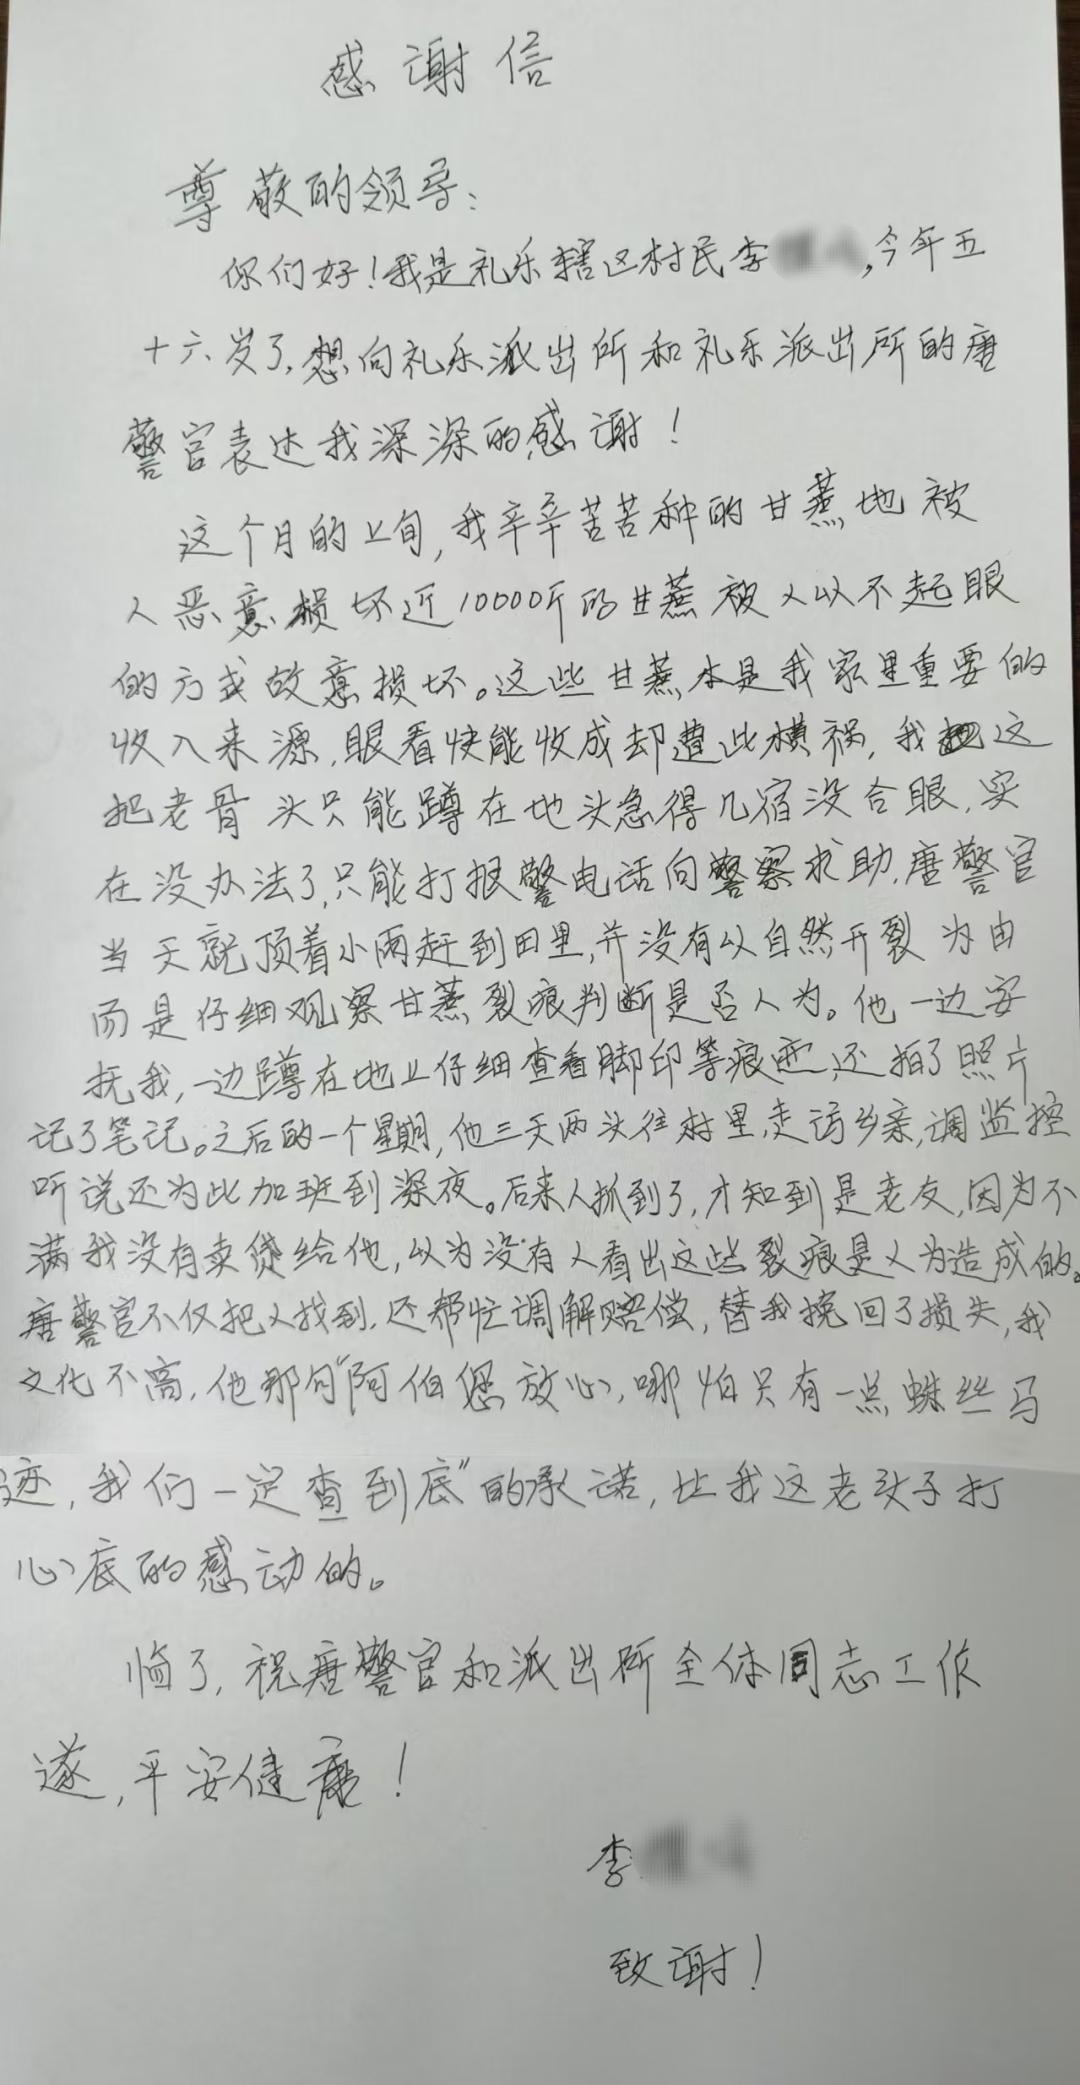 感谢信
尊敬的领导：
你们好！我是礼乐辖区村民李，今年五
十六岁了，想向礼乐派出所和礼乐派出所的唐
警官表达我深深的感谢！
这个月的上旬，我辛辛苦苦种的甘蔗地被
人恶意损坏近10000斤的甘蔗被人以不起眼
的方式故意损坏。这些甘蔗本是我家里重要的
收入来源，眼看快能收成却遭此横祸，我这
把老骨头只能蹲在地头急得几宿没合眼，实
在没办法了，只能打报警电话向警察求助，唐警官
当天就顶着小雨赶到田里，并没有以自然开裂为由
而是仔细观察甘蔗裂痕判断是否人为。他一边安
抚我，一边蹲在地上仔细查看脚印等痕迹，还拍了照片
记了笔记。之后的一个星期，他三天两头往村里，走访乡亲，调监控
听说还为此加班到深夜。后来人抓到了，才知到是老友，因为不
满我没有卖货给他，以为没有人看出这些裂痕是人为造成的。
唐警官不仅把人找到，还帮忙调解赔偿，替我挽回了损失，我
文化不高，他那句“阿伯您放心，哪怕只有一点蛛丝马
迹，我们一定查到底”的承诺，让我这老头子打
心底的感动的。
临了，祝唐警官和派出所全体同志工作
遂，平安健康！
李
致谢！